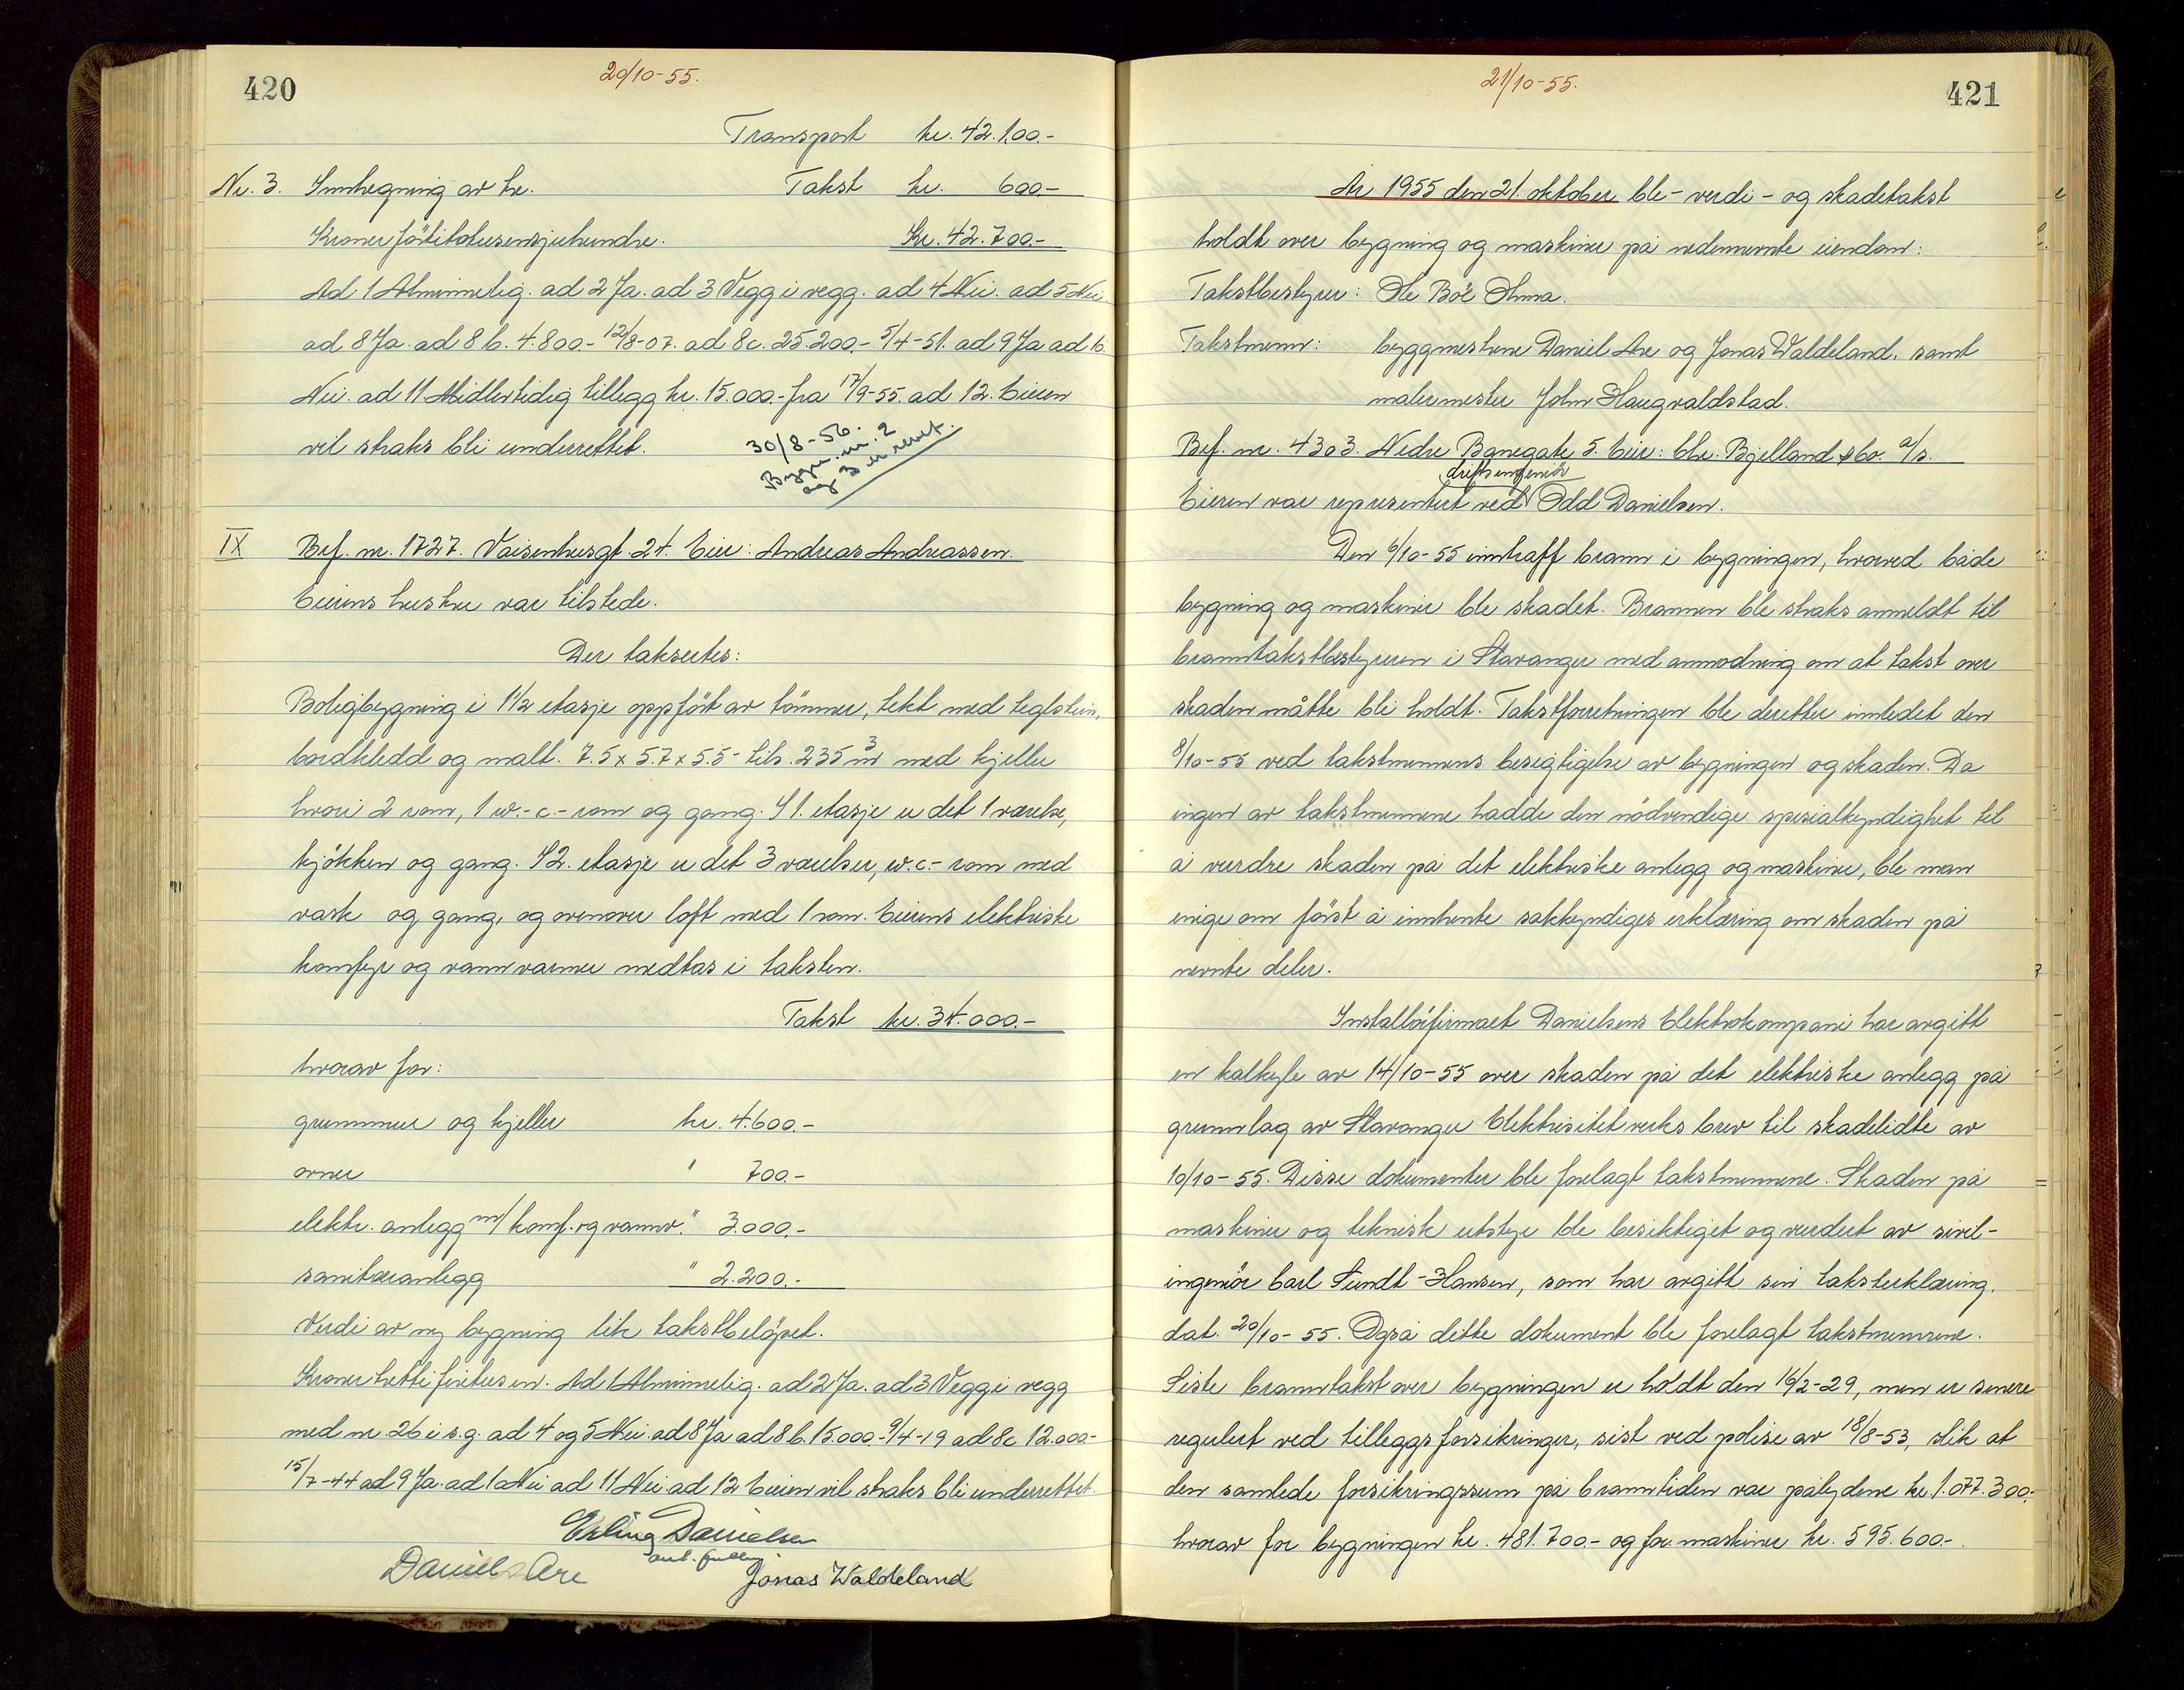 420
20/10-55.
Transport kr. 42.100.-
Nr. 3. Innhegning av tre. Takst kr. 600.-
Kroner förtitotusensjuhundre. Kr. 42.700.-
Ad 1 Alminnelig. ad 2 Ja. ad 3 Vegg i vegg. ad 4 Nei. ad 5 Nei
ad 8 Ja. ad 8 b. 4.800.- 12/8-07. ad 8c. 25.200.- 5/4-51. ad 9 Ja ad 10.
Nei. ad 11 Midlertidig tillegg kr. 15.000.- fra 17/9-55. ad 12. Eieren
vil straks bli underrettet.
30/8-56.
Bygn. nr. 2
og 3 er revet.
IX Brf. nr. 1727. Vaisenhusgt. 24. Eier: Andreas Andreassen.
Eierens hustru var tilstede.
Der taksertes:
Boligbygning i 1 1/2 etasje oppfört av tömmer, tekt med teglstein,
bordkledd og malt. 7.5 x 5.7 x 5.5 - tils. 235 m3 med kjeller
hvori 2 rom, 1 w.-c.-rom og gang. I 1. etasje er det 1 værelse,
kjökken og gang. I 2. etasje er det 3 værelser, w.c.-rom med
vask og gang, og ovenover loft med 1 rom. Eierens elektriske
komfyr og vannvarmer medtas i taksten.
Takst kr. 34.000.-
hvorav for:
grunnmur og kjeller kr. 4.600.-
ovner " 700.-
elektr. anlegg m/ komf. og vannv. " 3.000.-
sanitæranlegg " 2.200.-
Verdi av ny bygning lik takstbelöpet.
Kroner trettifiretusen. Ad 1 Alminnelig. ad 2 Ja. ad 3 Vegg i vegg
med nr 26 i s.g. ad 4 og 5 Nei. ad 8 Ja ad 8 b. 15.000.- 9/4-19 ad 8c 12.000.-
15/7-44 ad 9 Ja. ad 10 Nei ad 11 Nei. ad 12 Eieren vil straks bli underrettet.
Erling Danielsen
aut. fullm.
Daniel Are Jonas Waldeland
421
21/10-55.
År 1955 den 21. oktober ble - verdi - og skadetakst
holdt over bygning og maskiner på nedennevnte eiendom:
Takstbestyrer: Ole Böe Ohma.
Takstmenn: byggmestrene Daniel Are og Jonas Waldeland, samt
malermester John Haugvaldstad.
Brf. nr. 4303. Nedre Banegate 5. Eier: Chr. Bjelland & Co. A/S.
driftsingeniör
Eieren var representert ved Odd Danielsen.
Den 6/10-55 inntraff brann i bygningen, hvorved både
bygning og maskiner ble skadet. Brannen ble straks anmeldt til
branntakstbestyreren i Stavanger med anmodning om at takst over
skaden måtte bli holdt. Takstforretningen ble deretter innledet den
8/10-55 ved takstmennenes besigtigelse av bygningen og skaden. Da
ingen av takstmennene hadde den nödvendige spesialkyndighet til
å vurdre skaden på det elektriske anlegg og maskiner, ble man
enige om först å innhente sakkyndiges erklæring om skaden på
nevnte deler.
Installörfirmaet Danielsens Elektrokompani har avgitt
en kalkyle av 14/10-55 over skaden på det elektriske anlegg på
grunnlag av Stavanger Elektrisitetverks brev til skadelidte av
10/10-55. Disse dokumenter ble forelagt takstmennene. Skaden på
maskiner og teknisk utstyr ble besiktiget og vurdert av sivil-
ingeniör Carl Sundt-Hansen, som har avgitt sin taksterklæring,
dat. 20/10-55. Også dette dokument ble forelagt takstmennene.
Siste branntakst over bygningen er holdt den 16/2-29, men er senere
regulert ved tilleggsforsikringer, sist ved polise av 18/8-53, slik at
den samlede forsikringssum på branntiden var pålydene kr. 1.077.300.-
hvorav for bygningen kr. 481.700.- og for maskiner kr. 595.600.-